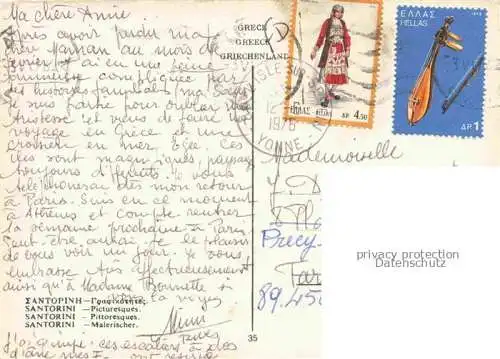 Ma chère Annie
Après avoir perdu ma
chère Maman au mois de
février et ai eu une
compliquée par
les histoires familiales
je suis partie pour oublier ma
tristesse et viens de faire un
voyage en Grèce et une
croisière en mer Egée. Ces
îles sont magnifiques, paysages
toujours différents. Je vous
téléphonerai dès mon retour
à Paris. Suis en ce moment
à Athènes et compte rentrer
la semaine prochaine à Paris.
Peut-être aurai-je le plaisir
de vous voir un jour. Je vous
embrasse Annie affectueusement
ainsi qu'à Madame Bonnette si
vous la voyez
ΣΑΝΤΟΡΙΝΗ — Γραφικότητες.
SANTORINI — Picturesques.
SANTORINI — Pittoresques.
SANTORINI — Malerischer.
J'ai grimpé ces escaliers à dos
d'âne mes
GRECE
GREECE
GRIECHENLAND
35
ΕΛΛΑΣ HELLAS
ΔΡ 4.50
ΕΛΛΑΣ
HELLAS
ΔΡ 1
12
1976
YONNE
Mademoiselle
Precy
89.450
privacy protection
Datenschutz